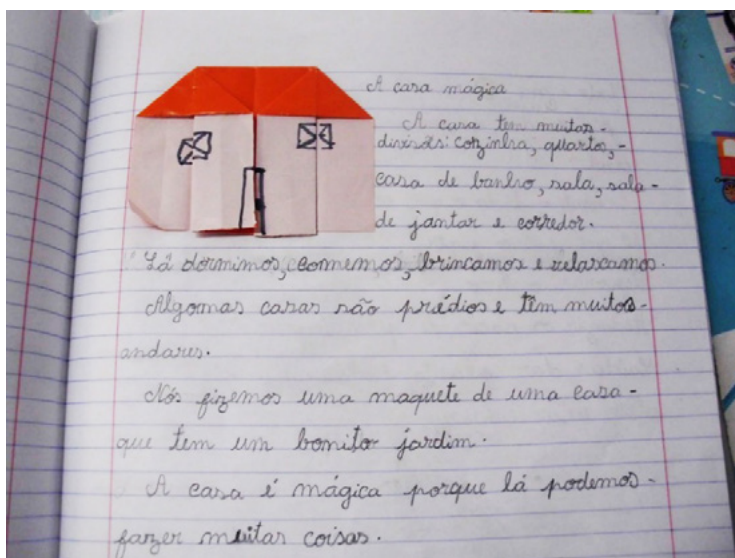 A casa mágica
A casa tem muitas-
divisões: cozinha, quartos,-
casa de banho, sala, sala-
de jantar e corredor.
Lá dormimos, comemos, brincamos e relaxamos.
Algomas casas são prédios e têm muitos-
andares.
Nós fizemos uma maquete de uma casa-
que tem um bonito jardim.
A casa é mágica porque lá podemos-
fazer muitas coisas.